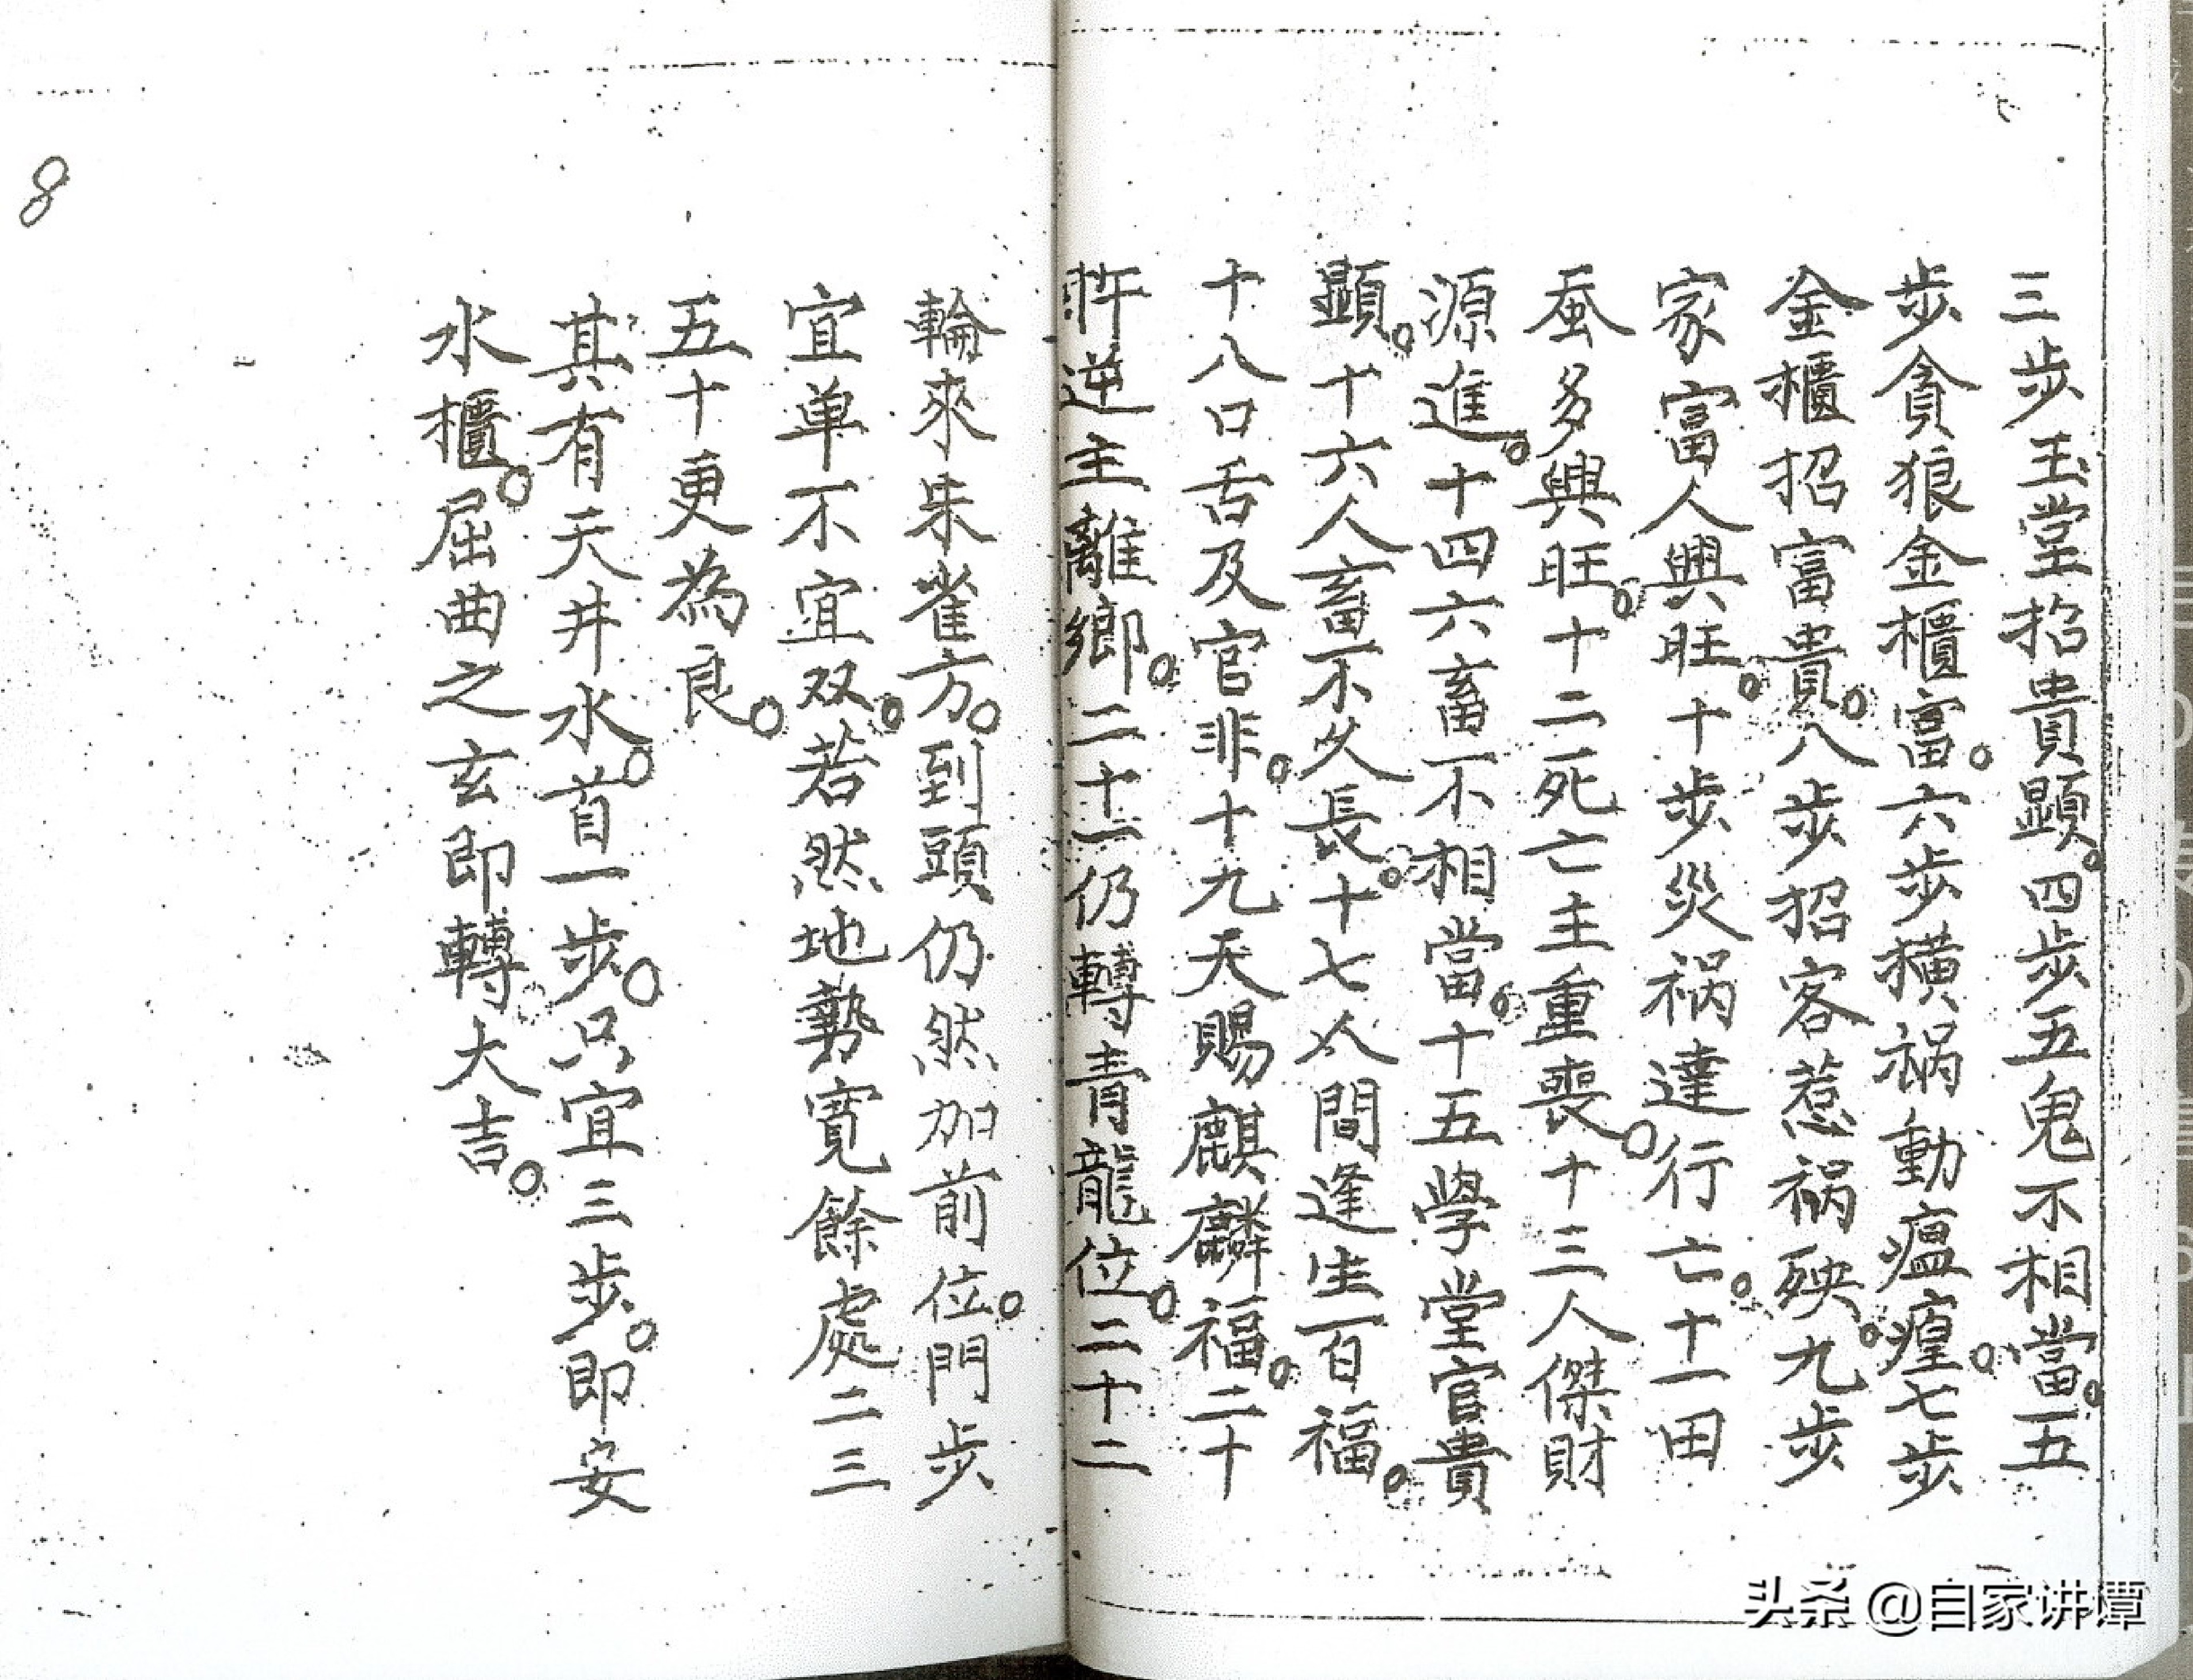 三步玉堂招貴顕。四步五鬼不相當。五
步貪狼金櫃富。六步横祸動瘟瘟七步
金櫃招富貴。八步招客惹祸殃。九步
家富人興旺。十步災祸達行亡。十一田
蚕多興旺。十二死亡主重喪。十三人傑財
源進。十四六畜不相當。十五學堂官貴
顕。十六人畜不久長。十七人間逢生百福。
十八口舌及官非。十九天賜麒麟福。二十
忤逆主離鄉。二十一仍轉青龍位。二十二
輪來朱雀方。到頭仍然加前位。門步
宜单不宜双。若然地勢寬餘處二三
五十更為良。
其有天井水。首一步。只宜三步。即安
水櫃。屈曲之玄即轉大吉。
8
头条 @自家讲谭